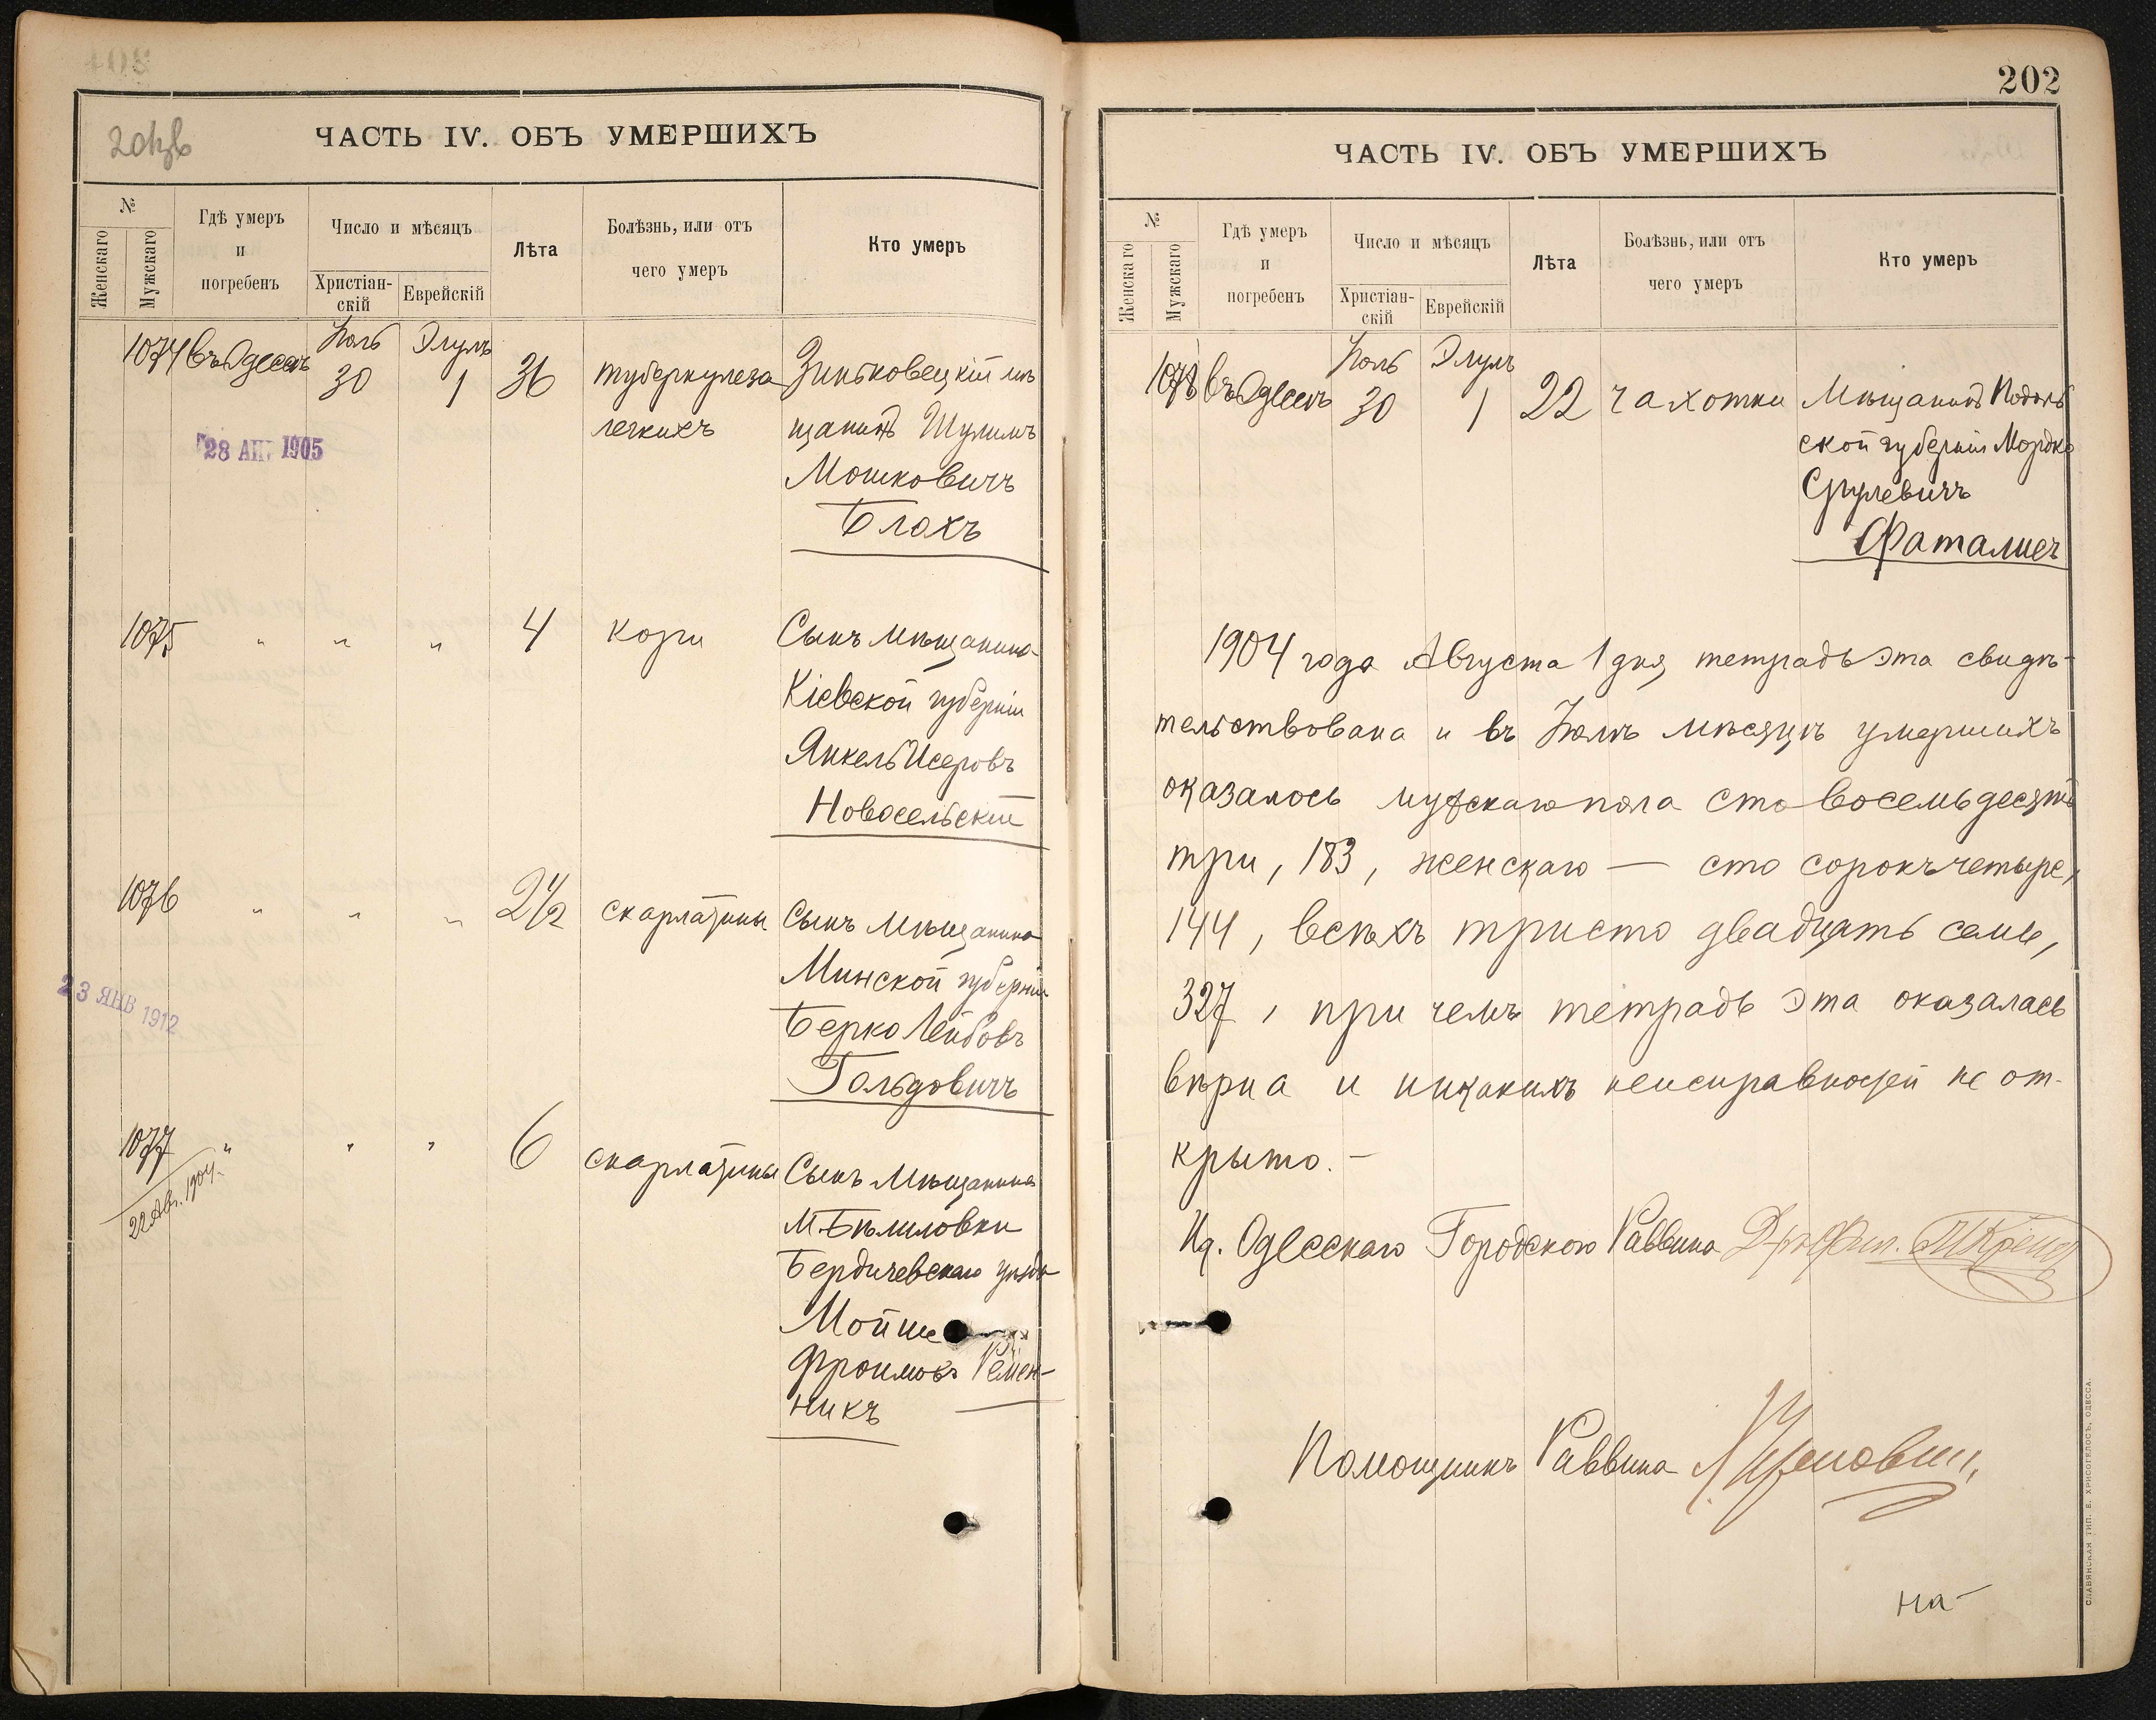 201об
ЧАСТЬ IV. ОБЪ УМЕРШИХЪ
№
Женскаго
Мужскаго
Гдѣ умеръ
и
погребенъ
Число и мѣсяцъ
Христіан-
скій
Еврейскій
Лѣта
Болѣзнь, или отъ
чего умеръ
Кто умеръ
1074 въ Одессѣ Іюль 30 Элулъ 1 36 туберкулеза Зиньковецкій мѣ
легкихъ щанинъ Шулимъ
28 АПР. 1905
Мошковичъ
Блохъ
1075 " " " 4 кори Сынъ мѣщанина
Кіевской губерніи
Янкель Исеровъ
Новосельскій
1076 " " " 2 1/2 скарлатины Сынъ мѣщанина
Минской губерніи
23 ЯНВ 1912
Берко Лейбовъ
Гольдовичъ
1077 " " " 6 скарлатины Сынъ мѣщанина
22 Авг. 1904.
м. Бѣлиловки
Бердичевскаго уѣзда
Мойше
Фроимовъ Ремен-
никъ
202
ЧАСТЬ IV. ОБЪ УМЕРШИХЪ
№
Женскаго
Мужскаго
Гдѣ умеръ
и
погребенъ
Число и мѣсяцъ
Христіан-
скій
Еврейскій
Лѣта
Болѣзнь, или отъ
чего умеръ
Кто умеръ
1078 въ Одессѣ Іюль 30 Элулъ 1 22 чахотки Мѣщанинъ Подоль
ской губерніи Мордко
Срулевичъ
Фаталиеч
1904 года Августа 1 дня тетрадь эта свидѣ-
тельствована и въ Іюлѣ мѣсяцѣ умершихъ
оказалось мужскаго пола сто восемьдесятъ
три, 183, женскаго — сто сорокъ четыре,
144, всѣхъ тристо двадцать семь,
327, при чемъ тетрадь эта оказалась
вѣрна и никакихъ неисправностей не от-
крыто. —
Ид. Одесскаго Городского Раввина
Помощникъ Раввина
на-
СЛАВЯНСКАЯ ТИП. Е. ХРИСОГЕЛОСЪ, ОДЕССА.